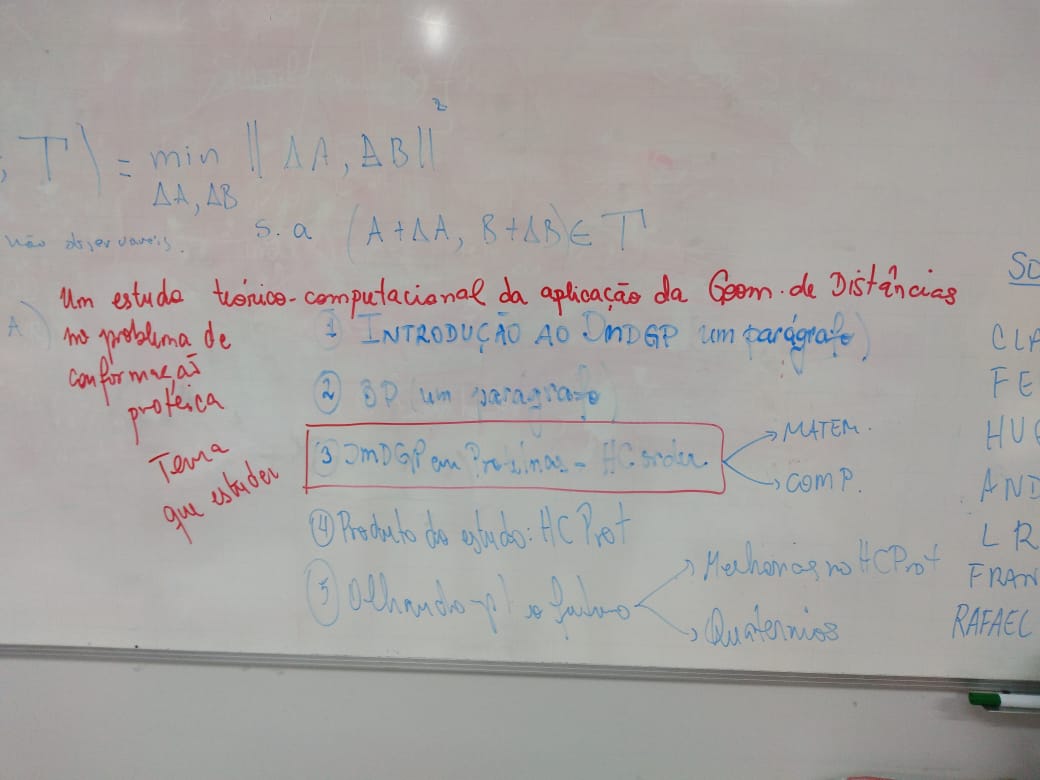 , T) = min || ΔA, ΔB ||²
ΔA, ΔB
não observáveis. s. a (A+ΔA, B+ΔB) ∈ T
A)
Um estudo teórico-computacional da aplicação da Geom. de Distâncias
no problema de
conformação
protéica
Tema
que estudei
1 INTRODUÇÃO AO DMDGP um parágrafo)
② BP (um parágrafo)
③ DMDGP em Proteínas - HC order
→ MATEM.
→ COMP.
④ Produto do estudo: HCProt
⑤ Olhando p/ o futuro
→ Melhorias no HCProt
→ Quatérnios
CLA
FE
HUG
AND
LR
FRAN
RAFAEL